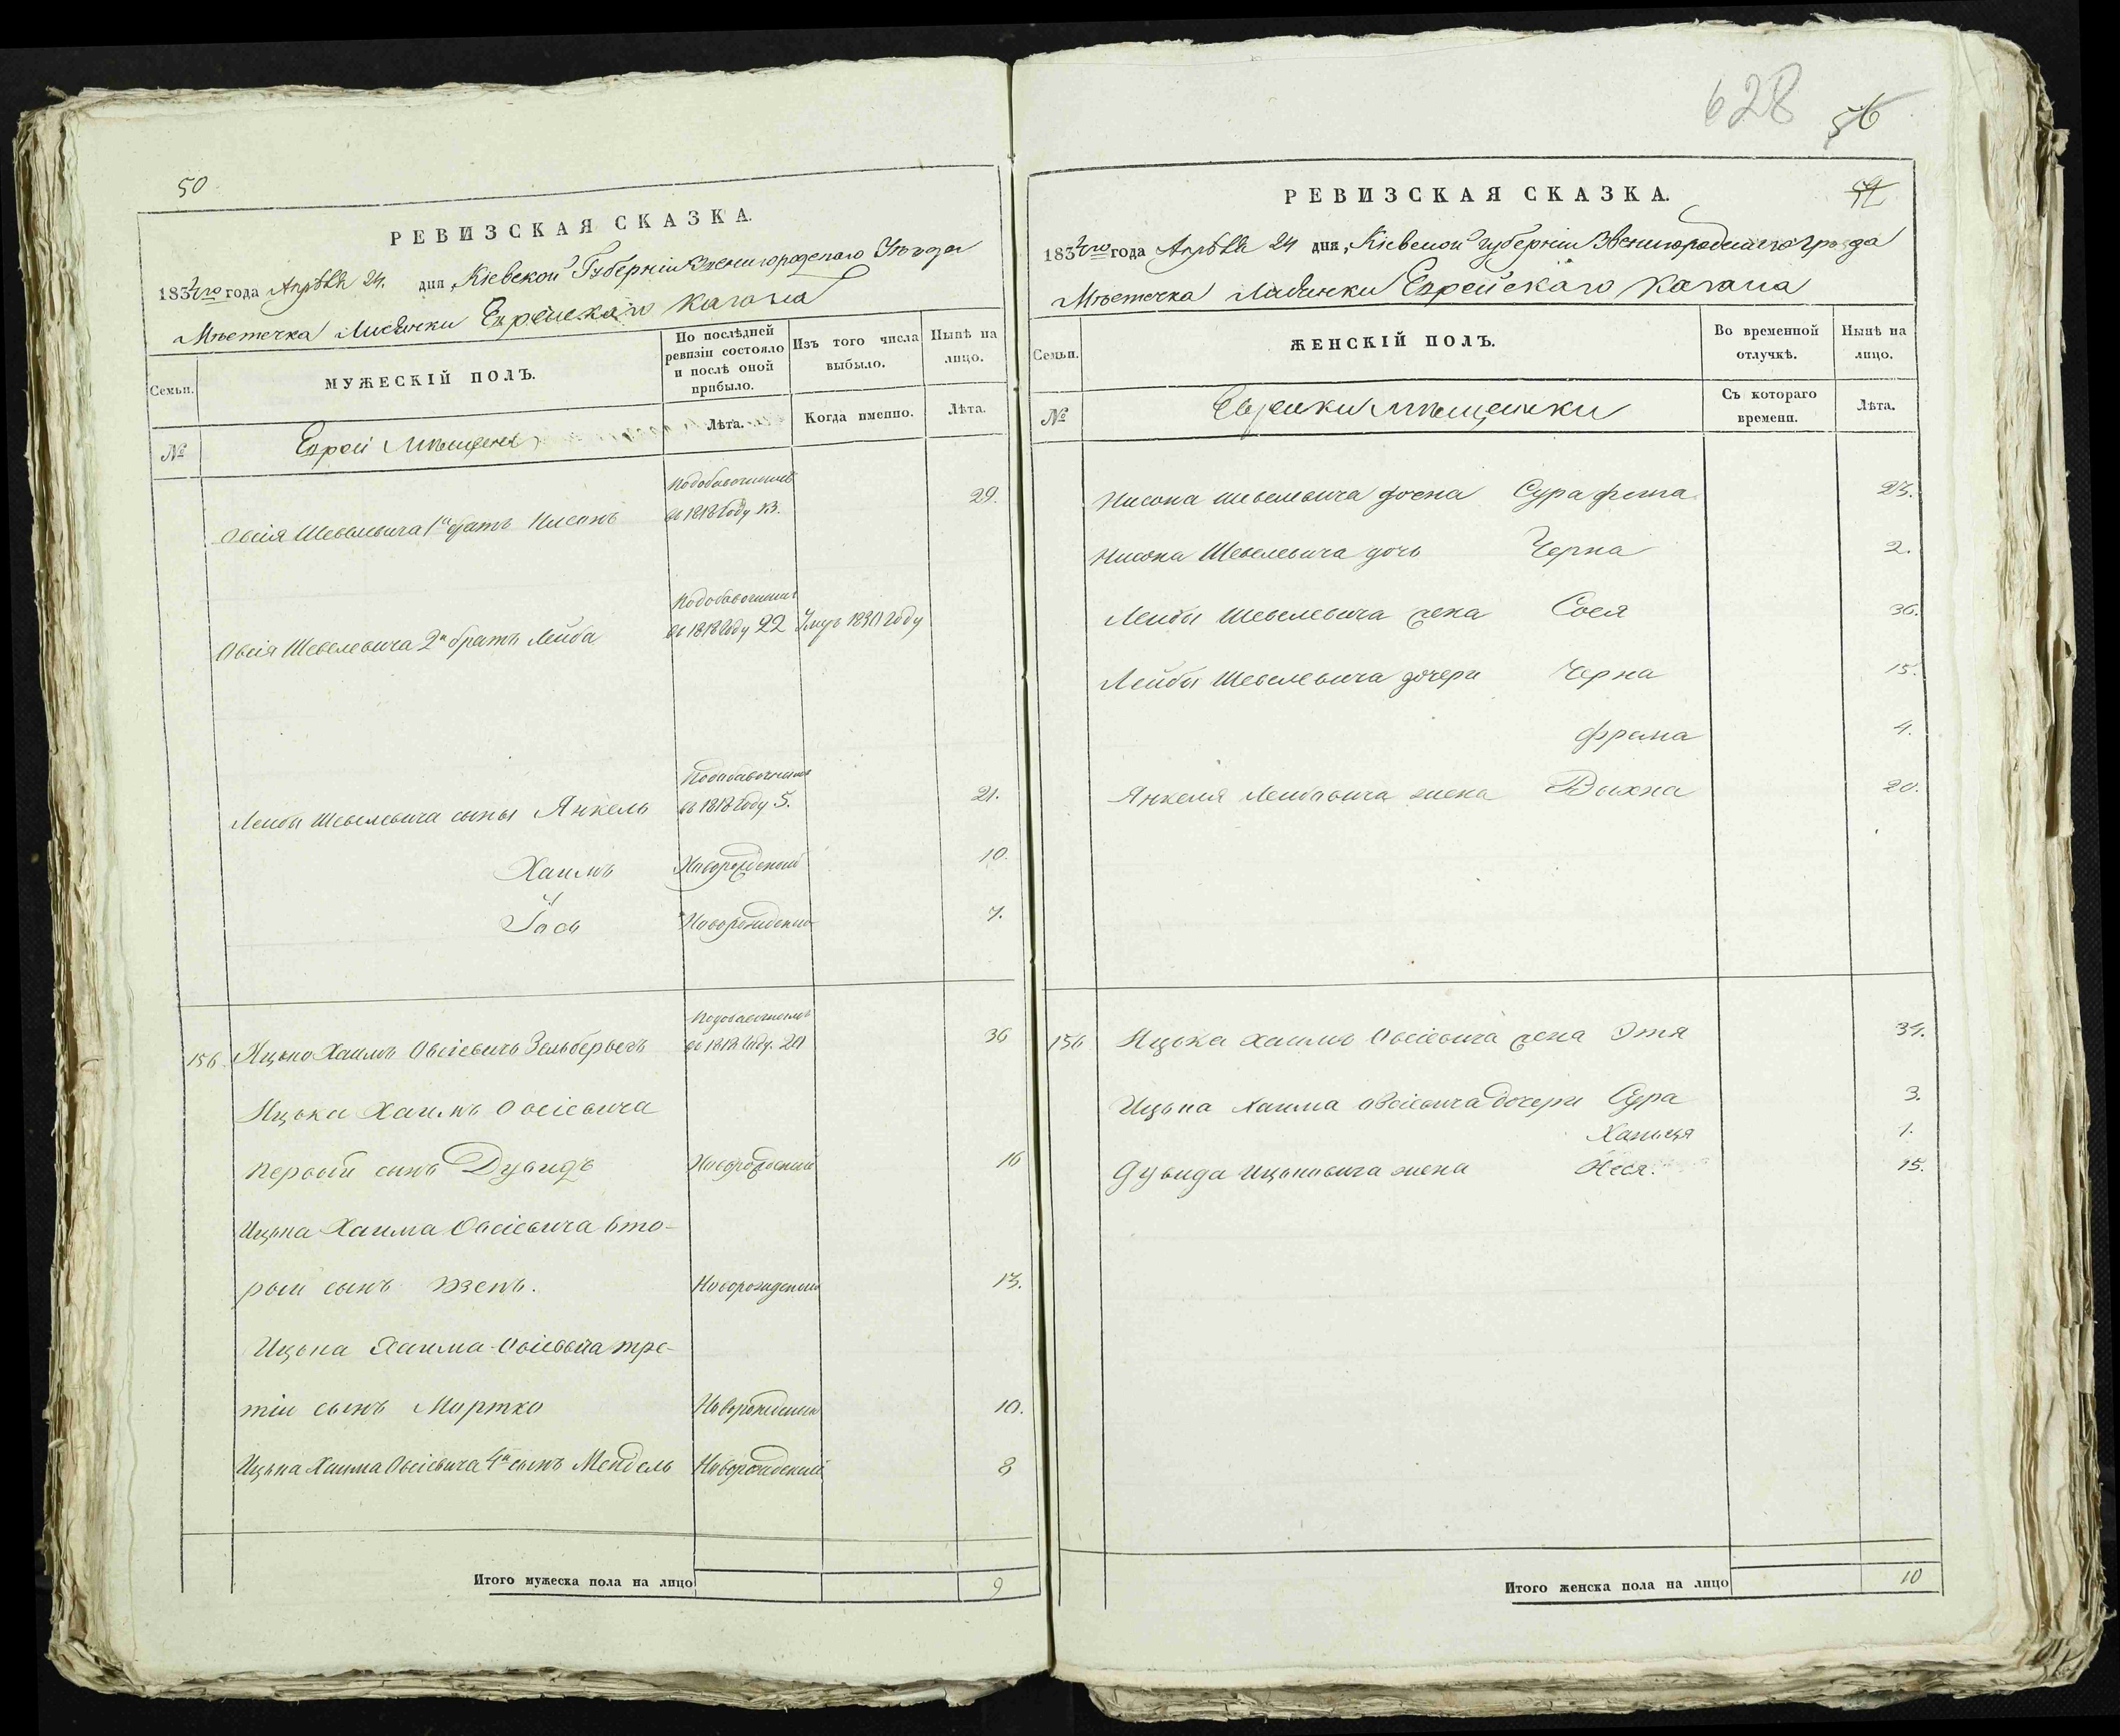 50
РЕВИЗСКАЯ СКАЗКА.
1834го года Апрѣля 24. дня, Кіевской Губерніи Звенигородскаго Уѣзда
Мѣстечка Лисянки Еврейскаго Кагала
Семьи.
МУЖЕСКІЙ ПОЛЪ.
По послѣдней
ревизіи состояло
и послѣ оной
прибыло.
Изъ того числа
выбыло.
Нынѣ на
лицо.
№
Евреи Мѣщане
Лѣта.
Когда именно.
Лѣта.
Овсія Шевелевича 1й братъ Нисонъ
въ 1818 Году 13.
29.
Овсія Шевелевича 2й братъ Лейба
въ 1818 Году 22
Умръ 1830 Году
Лейбы Шевелевича сыны Янкель
въ 1818 Году 5.
21.
Хаимъ Новорожденый 10.
Іось Новорожденый 7.
156. Ицько Хаимъ Овсіевичъ Зельберъ
въ 1818 Году 20
36
Ицька Хаимъ Овсіевича
первый сынъ Дувидъ Новорожденый 16
Ицька Хаима Овсіевича вто-
рый сынъ Новорожденый 13.
Ицька Хаима Овсіевича тре-
тій сынъ Мортко Новорожденый 10.
Ицька Хаима Овсіевича 4й сынъ Мендель Новорожденый 8
Итого мужеска пола на лицо 9
628 56
РЕВИЗСКАЯ СКАЗКА.
1834го года Апрѣля 24 дня, Кіевской губерніи Звенигородскаго уѣзда
Мѣстечка Лисянки Еврейскаго Кагала
Семьи.
ЖЕНСКІЙ ПОЛЪ.
Во временной
отлучкѣ.
Нынѣ на
лицо.
№
Еврейки Мѣщанки
Съ котораго
времени.
Лѣта.
Нисона Шевелевича жена Сура 23.
Нисона Шевелевича дочь Черна 2.
Лейбы Шевелевича жена Сося 36.
Лейбы Шевелевича дочери Черна 15.
Фрема 4.
Янкеля Лейбовича жена Выхна 20.
156 Ицька Хаима Овсіевича жена Этя 34.
Ицька Хаима Овсіевича дочери Сура 3.
Ханьця 1.
Дувида Ицьковича жена Неся. 15.
Итого женска пола на лицо 10